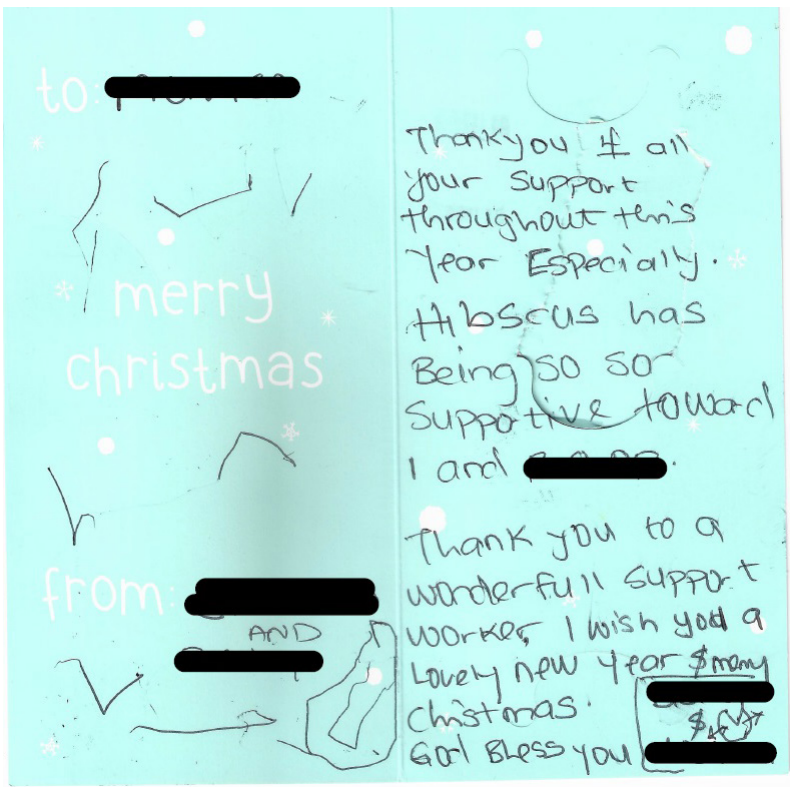 to:
merry
christmas
from:
AND
Thankyou 4 all
your support
throughout this
Year Especially.
Hibscus has
Being so so
Supportive toward
I and
Thank you to a
wonderfull support
worker, I wish you a
Lovely new year $ merry
Christmas.
$
God Bless you